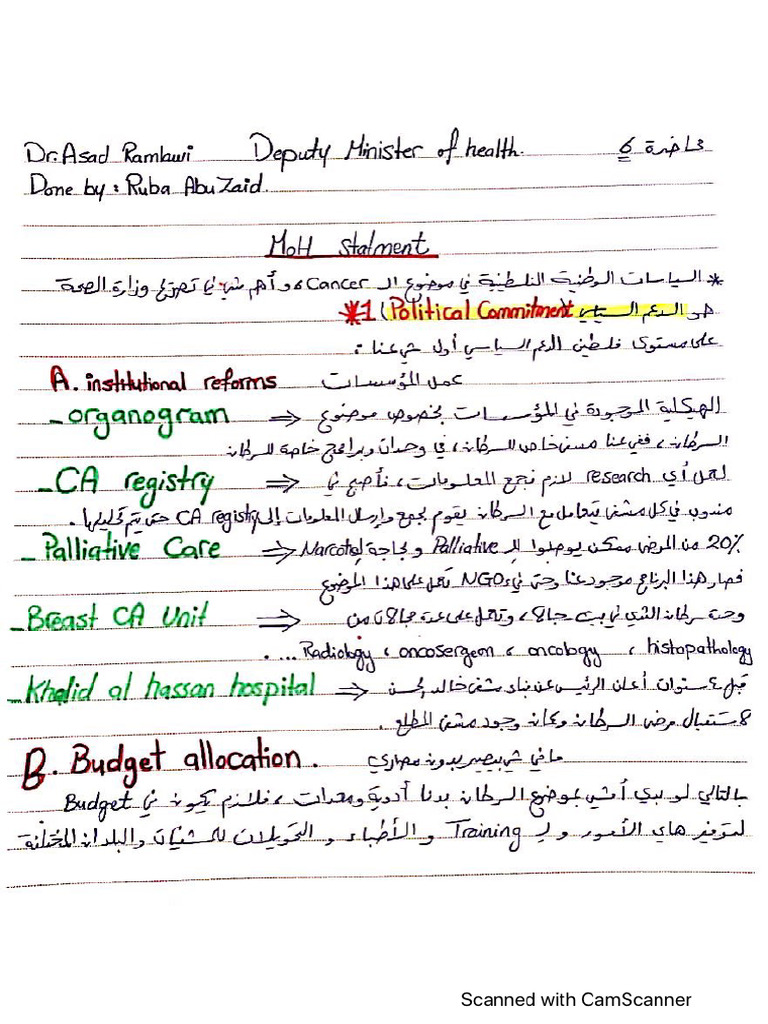 Dr. Asad Ramlawi Deputy Minister of health. محاضرة 6
Done by : Ruba AbuZaid.
MoH Statment
* السياسات الوطنية الفلسطينية في موضوع الـ Cancer ، وأهم شي في وزارة الصحة
هو الدعم السياسي Political Commitment (1*
على مستوى فلسطين الدعم السياسي أول شي عنا :
A. institutional reforms عمل المؤسسات
- organogram ⇒ الهيكلية الموجودة في المؤسسات بخصوص موضوع
السرطان ، ففي عنا مسمى خاص للسرطان ، في وحدات وبرامج خاصة للسرطان
- CA registry ⇒ لعمل أي research لازم نجمع المعلومات ، فأصبح في
مندوب في كل مشفى يتعامل مع السرطان يقوم بجمع وإرسال المعلومات إلى CA registry حتى يتم تحليلها .
- Palliative Care ⇒ 20% من المرض ممكن يوصلوا للـ Palliative وبحاجة لـ Narcotic
فصار هذا البرنامج موجود عنا وحتى في NGOs تعمل على هذا الموضوع
- Breast CA Unit ⇒ وحدة سرطان الثدي في بيت جالا ، وتعمل على عدة مجالات من
Radiology ، oncoSergeon ، oncology ، histopathology ... .
- Khalid al hassan hospital ⇒ قبل 4 سنوات أعلن الرئيس عن بناء مشفى خالد الحسن
لاستقبال مرضى السرطان وكان وجود مشفى المطلع .
B. Budget allocation . ما في شي بيصير بدون مصاري
بالتالي لو بدي أمشي بموضوع السرطان بدنا أدوية ومعدات ، فلازم يكون في Budget
لتوفير هاي الأمور و لـ Training و الأطباء ، و التحويلات للمشفيات والبلدان المختلفة
Scanned with CamScanner